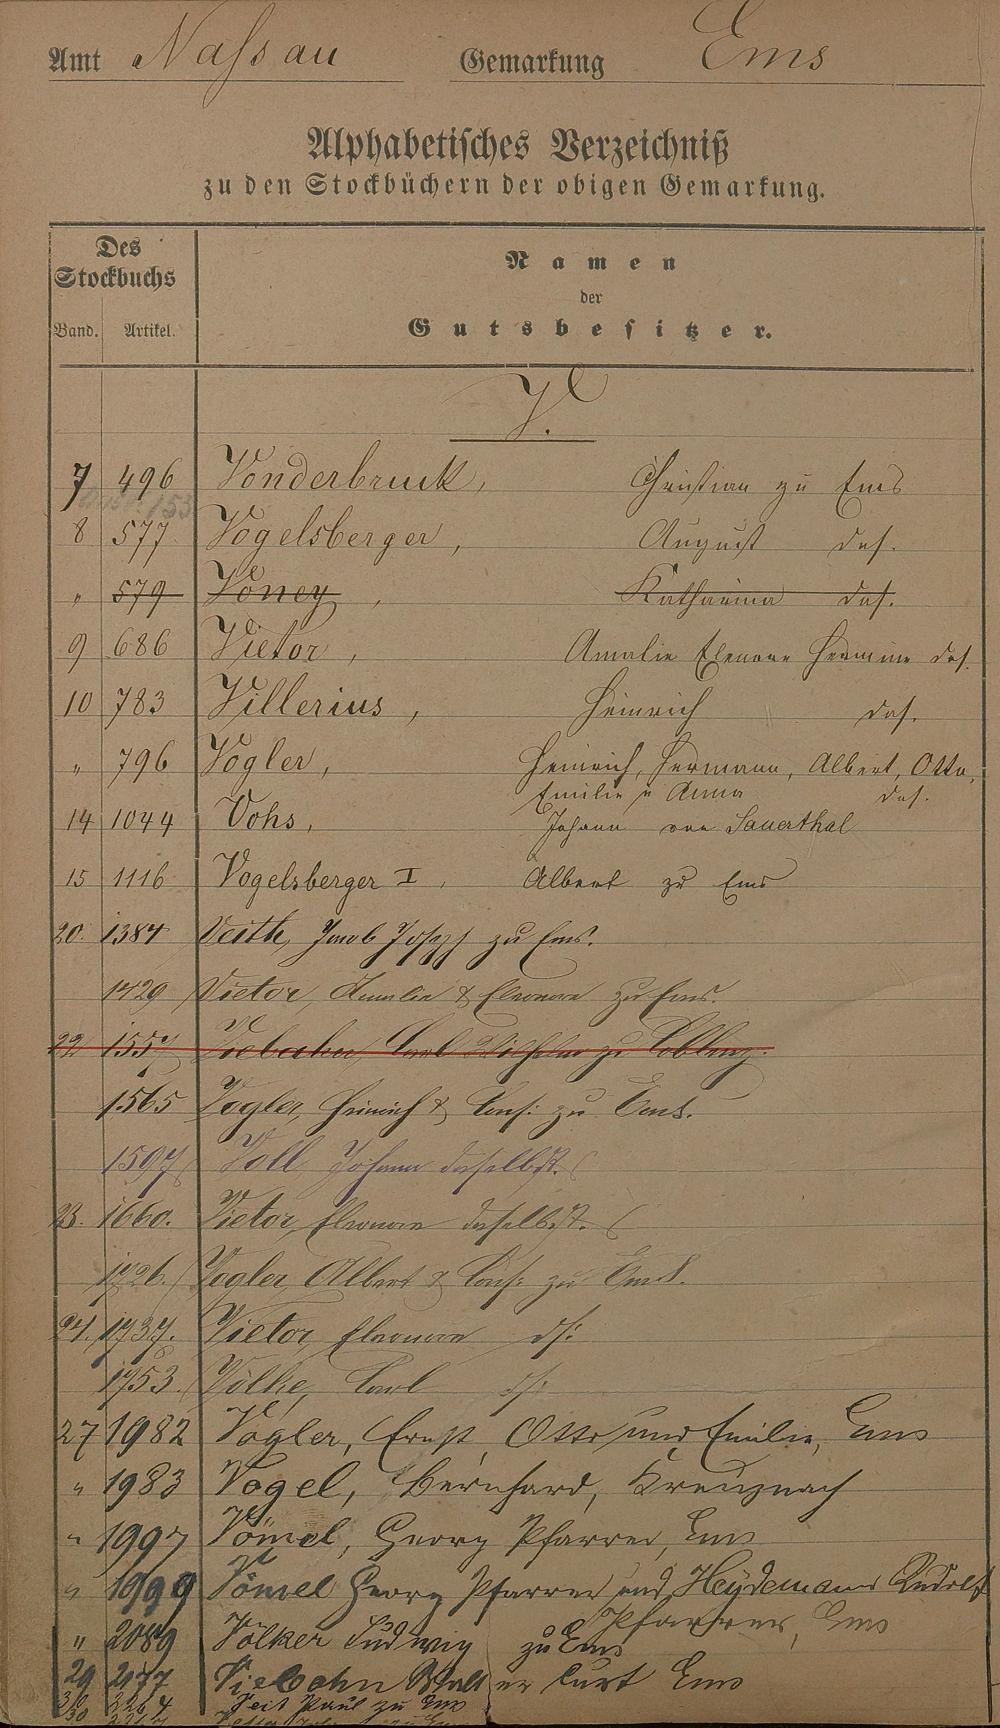 Amt Nassau Gemarkung Ems
Alphabetisches Verzeichniß
zu den Stockbüchern der obigen Gemarkung.
Des Stockbuchs
Band. Artikel.
Namen
der
Gutsbesitzer.
V.
7 496 Vonderbruck, Christian zu Ems
8 577 Vogelsberger, August das.
" 579 Voney, Katharina das.
9 686 Vietor, Amalie Elenore Hermine das.
10 783 Villerius, Heinrich das.
" 796 Vogler, Heinrich, Hermann, Albert, Otto,
Emilie u Anna das.
14 1044 Vohs, Johann von Sauerthal
15 1116 Vogelsberger I, Albert zu Ems
20. 1384 Veith, Jacob Joseph zu Ems.
1429 Vietor, Amalie & Eleonore zu Ems.
22 155 Viebahn, Carl Wilhelm zu Coblenz.
1565 Vogler, Heinrich & Cons: zu Ems.
1597 Voll Johann daselbst.
23. 1660. Vietor, Eleonore daselbst.
1726. Vogler Albert & Cons: zu Ems.
24. 1737. Vietor, Eleonore ds:
1753. Völke, Carl ds:
27 1982 Vogler, Ernst, Otto und Emilie, Ems
" 1983 Vogel, Bernhard, Kreuznach
" 1997 Vömel, Georg Pfarrer, Ems
" 1999 Vömel Georg Pfarrer und Heydemann Rudolf
Pfarrer, Ems
" 2089 Völker Ludwig zu Ems
29 2177 Viebahn Walter Curt Ems
30 2264 Veit Paul zu Ems
30